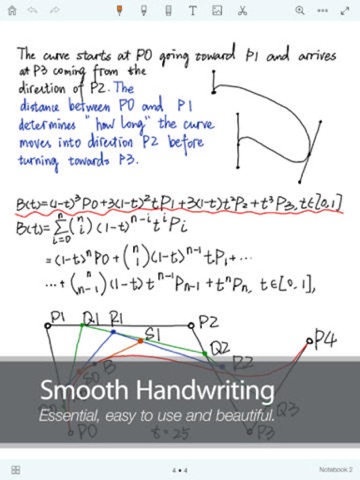 The curve starts at P0 going toward P1 and arrives
at P3 coming from the
direction of P2. The
distance between P0 and P1
determines "how long" the curve
moves into direction P2 before
turning towards P3.
B(t)=(1-t)³P0+3(1-t)²tP₁+3(1-t)t²P₂+t³P₃, t∈[0,1]
B(t)=∑ⁿᵢ₌₀(ⁿᵢ)(1-t)ⁿ⁻ⁱtⁱPᵢ
=(1-t)ⁿP0+(ⁿ₁)(1-t)ⁿ⁻¹tP₁+...
...+(ⁿₙ₋₁)(1-t)tⁿ⁻¹Pₙ₋₁+tⁿPₙ, t∈[0,1],
P1 Q1 R1 P2
S1
Q2
P4
B
R2
S0
Smooth Handwriting
Essential, easy to use and beautiful.
Q3
P0 t=.25 P3
4 • 4
Notebook 2